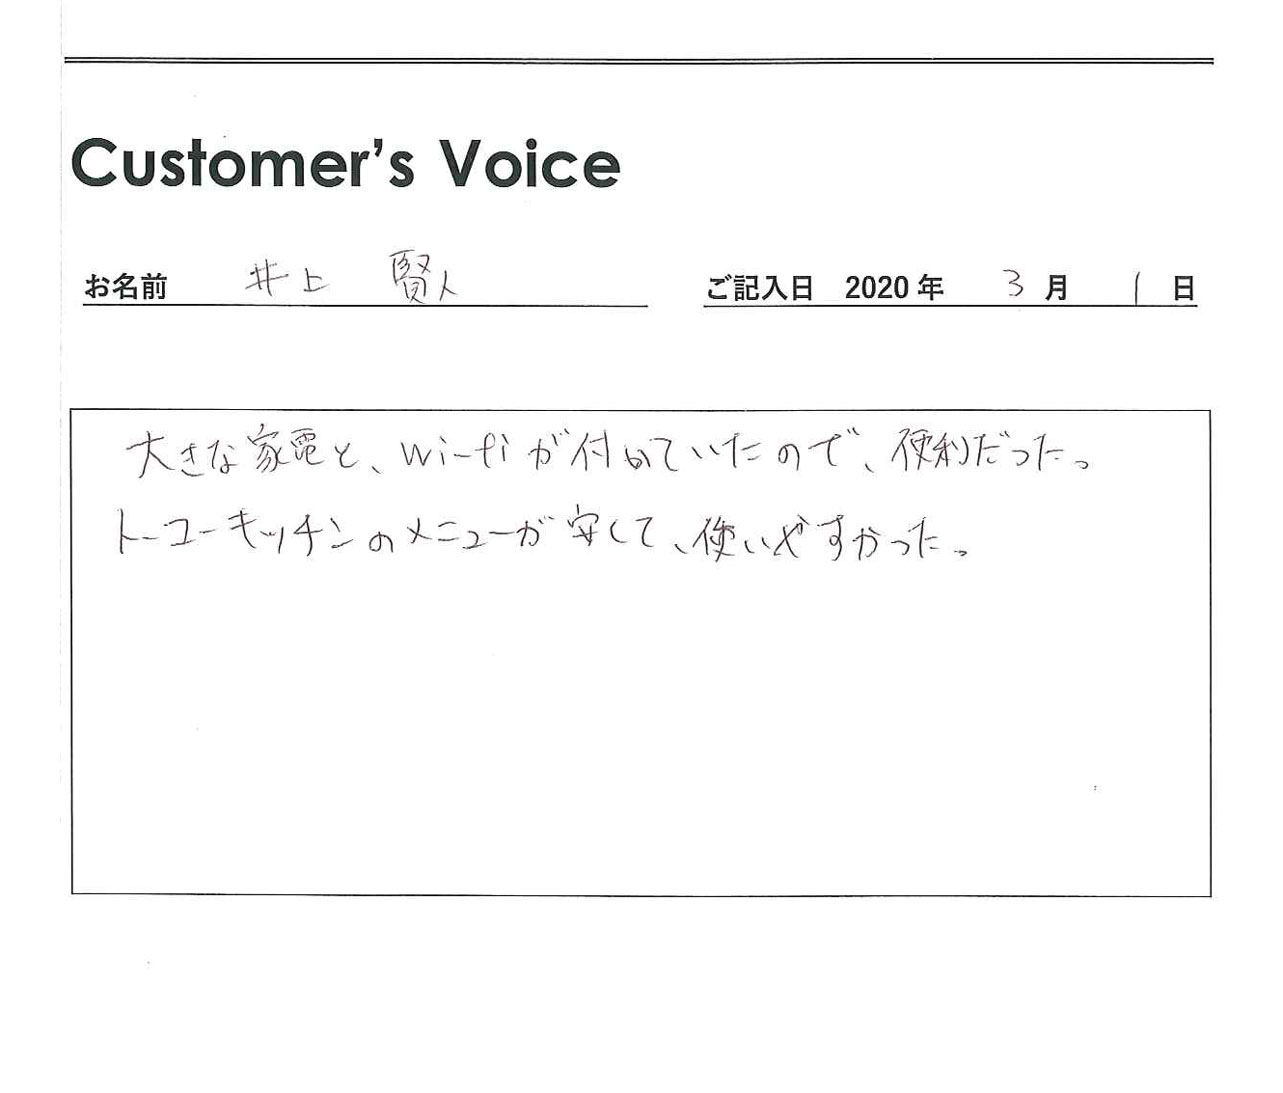 Customer's Voice
お名前 井上 賢人 ご記入日 2020年 3月 1日
大きな家電と、Wi-fiが付いていたので、便利だった。
トーコーキッチンのメニューが安くて、使いやすかった。